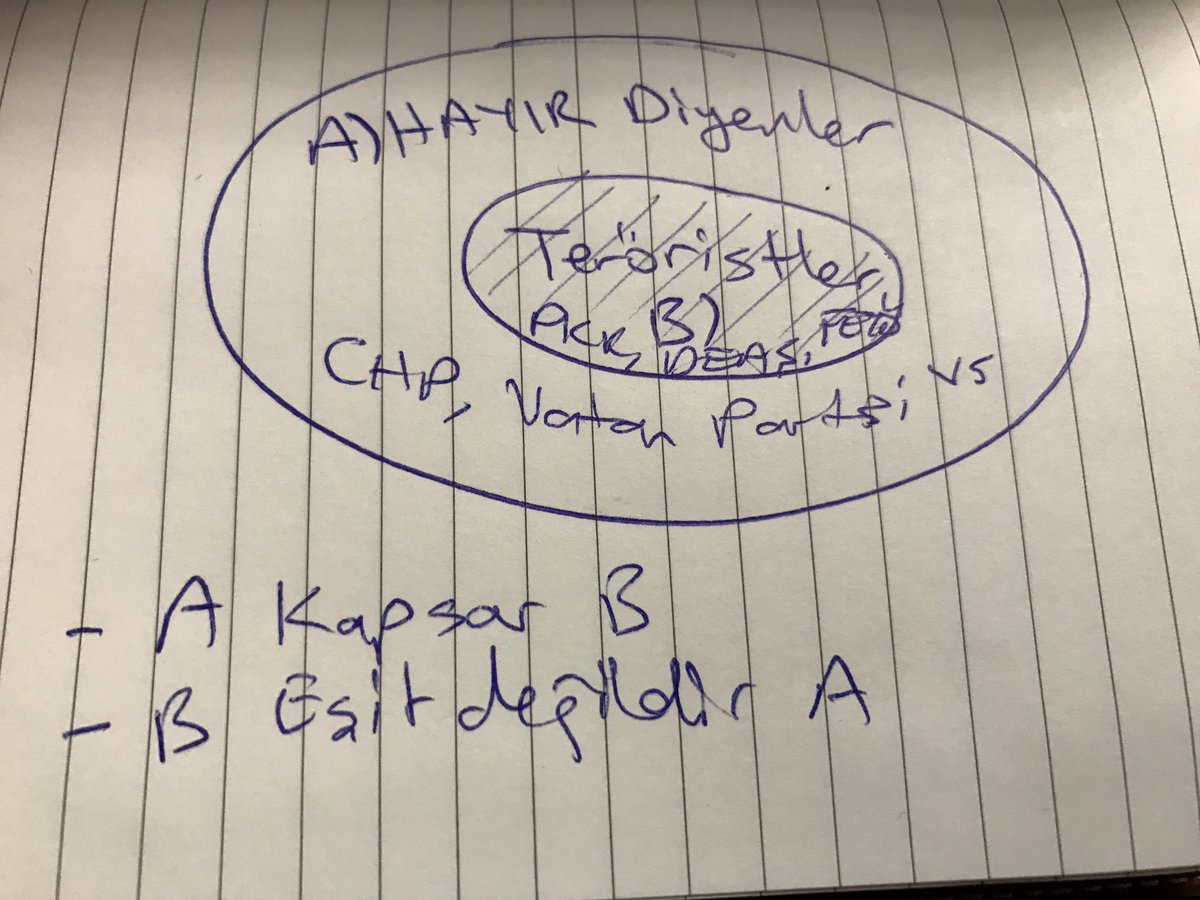 A) HAYIR Diyenler
Teröristler
B)
PKK, DEAŞ, FETÖ
CHP, Vatan Partisi vs
- A Kapsar B
- B Eşit değildir A